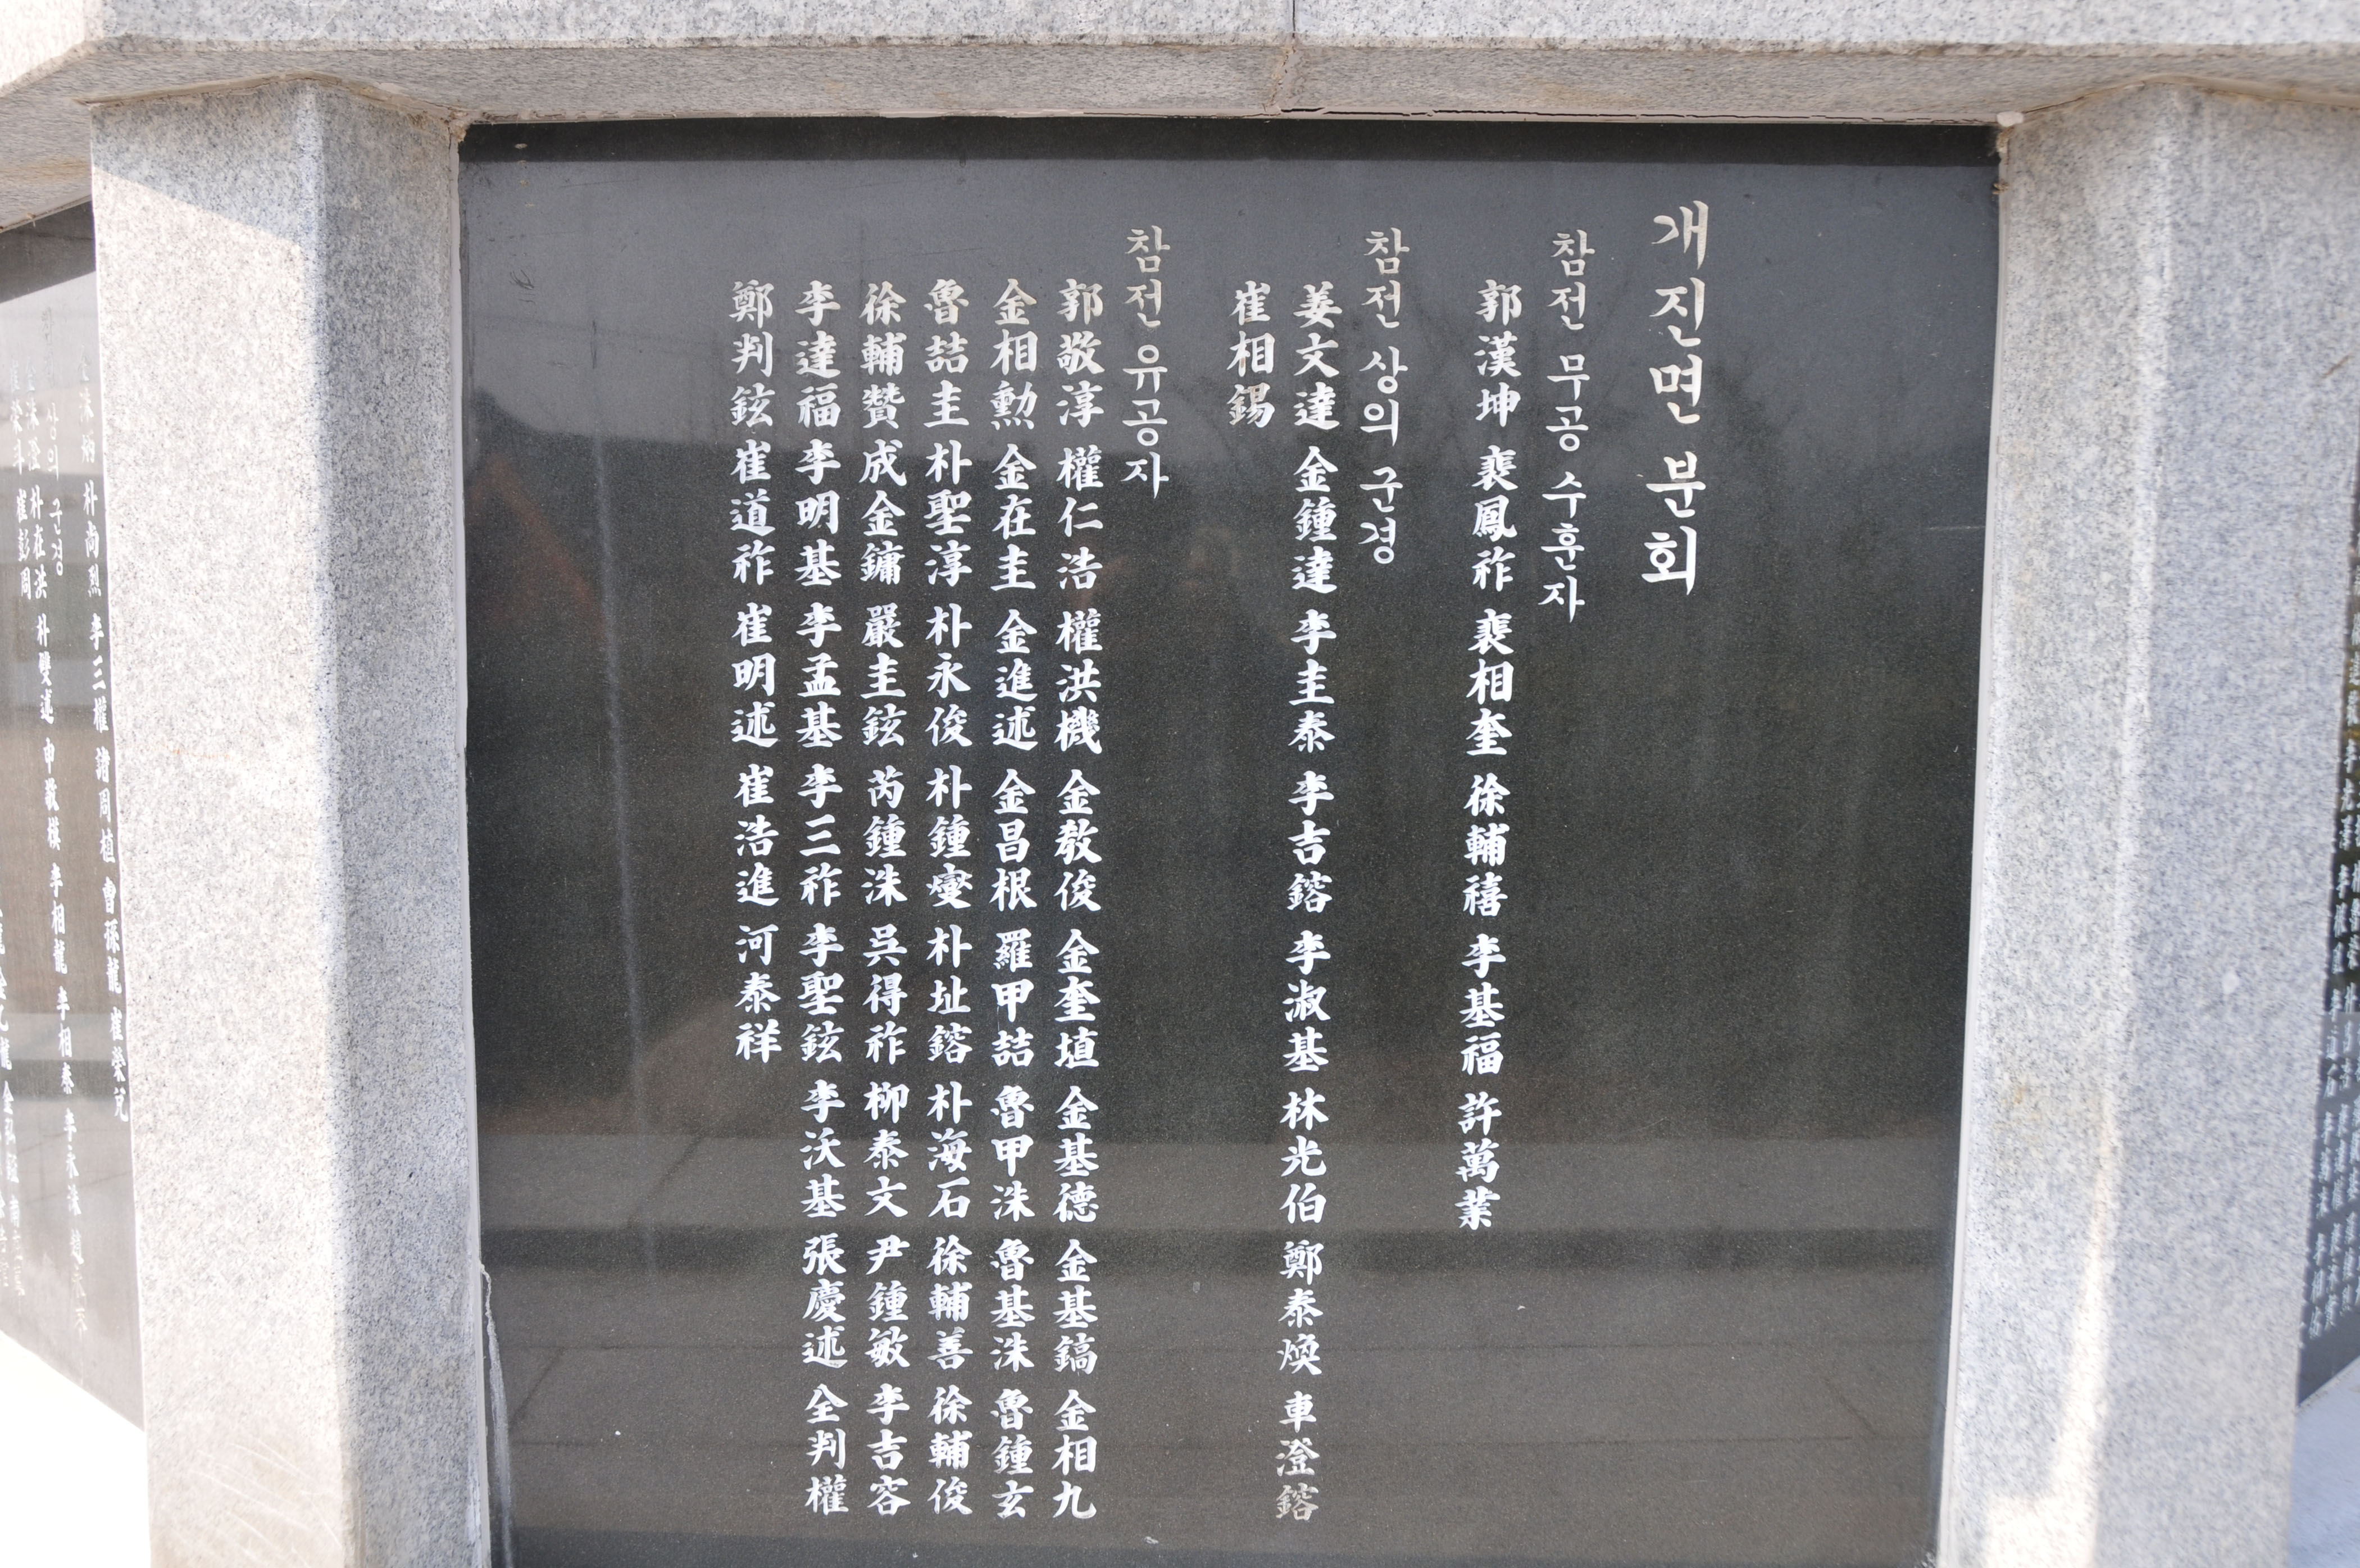 개진면 분회
참전 무공 수훈자
郭漢坤 裵鳳祚 裵相奎 徐輔禧 李基福 許萬業
참전 상의 군경
姜文達 金鍾達 李圭泰 李吉鎔 李淑基 林光伯 鄭泰煥 車澄鎔
崔相錫
참전 유공자
郭敬淳 權仁浩 權洪機 金敎俊 金奎埴 金基德 金基鎬 金相九
金相勲 金在圭 金進述 金昌根 羅甲喆 魯甲洙 魯基洙 魯鍾玄
魯喆圭 朴聖淳 朴永俊 朴鍾燮 朴址鎔 朴海石 徐輔善 徐輔俊
徐輔贊 成金鏞 嚴圭鉉 芮鍾洙 吳得祚 柳泰文 尹鍾敏 李吉容
李達福 李明基 李孟基 李三祚 李聖鉉 李沃基 張慶述 全判權
鄭判鉉 崔道祚 崔明述 崔浩進 河泰祥
朴尙烈 李三權 諸周植 曺孫龍
상의 군경
朴在洪 朴雙述 李相龍 李相泰 李永洙
崔彭周